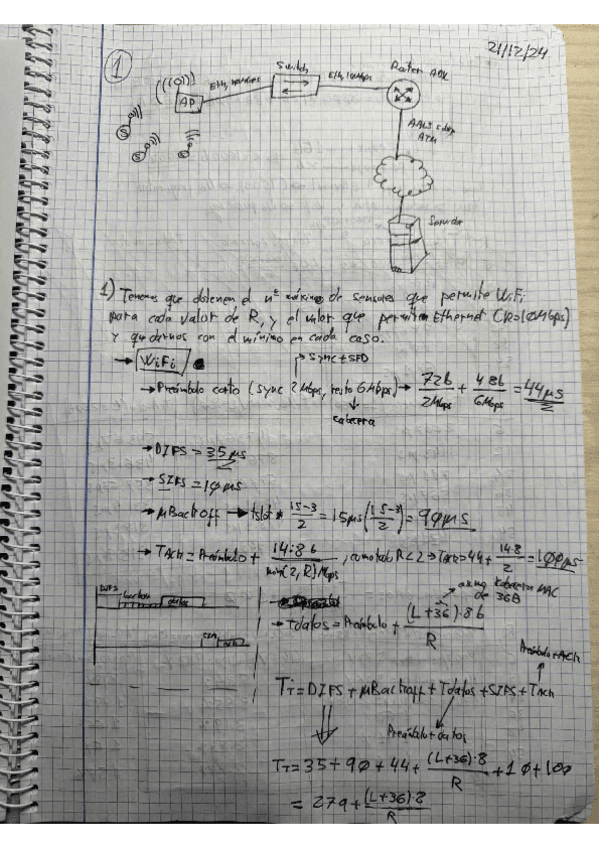 21/12/24
1
Switch
Router ADSL
Eth 10Mbps
AP
S
S
S
AAL5 sobre
ATM
Servidor
1) Tenemos que obtener el nº máximo de sensores que permite WiFi
para cada valor de R, y el valor que permiten Ethernet (R=10Mbps)
y quedarnos con el mínimo en cada caso.
→ WiFi
Sync + SFD
→ Preámbulo corto (Sync 2Mbps, resto 6Mbps) → 72b/2Mbps + 48b/6Mbps = 44μs
cabecera
→ DIFS = 35μs
→ SIFS = 10μs
→ μBackoff → tslot * 15-3/2 = 15μs (15-3/2) = 90μs
→ TAck = Preámbulo + 14·8b/min(2,R)Mbps, como todo R<2 → TAck = 44 + 14·8/2 = 100μs
DIFS
datos
cabecera MAC
de 36B
→ tdatos = Preámbulo + (L+36)·8b/R
Preámbulo+Ack
TT = DIFS + μBackoff + Tdatos + SIFS + TAck
Preámbulo + datos
TT = 35 + 90 + 44 + (L+36)·8/R + 10 + 100
= 279 + (L+36)·8/R